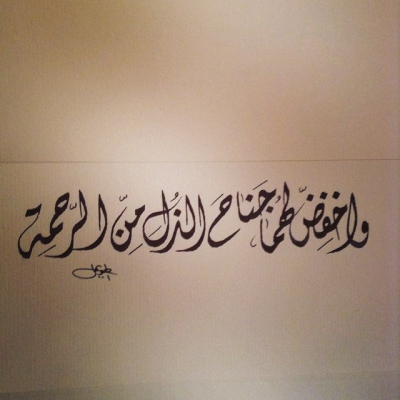 واخفِضّ لهُما جَناحَ الذُلِ مِنّ الرَّحمة